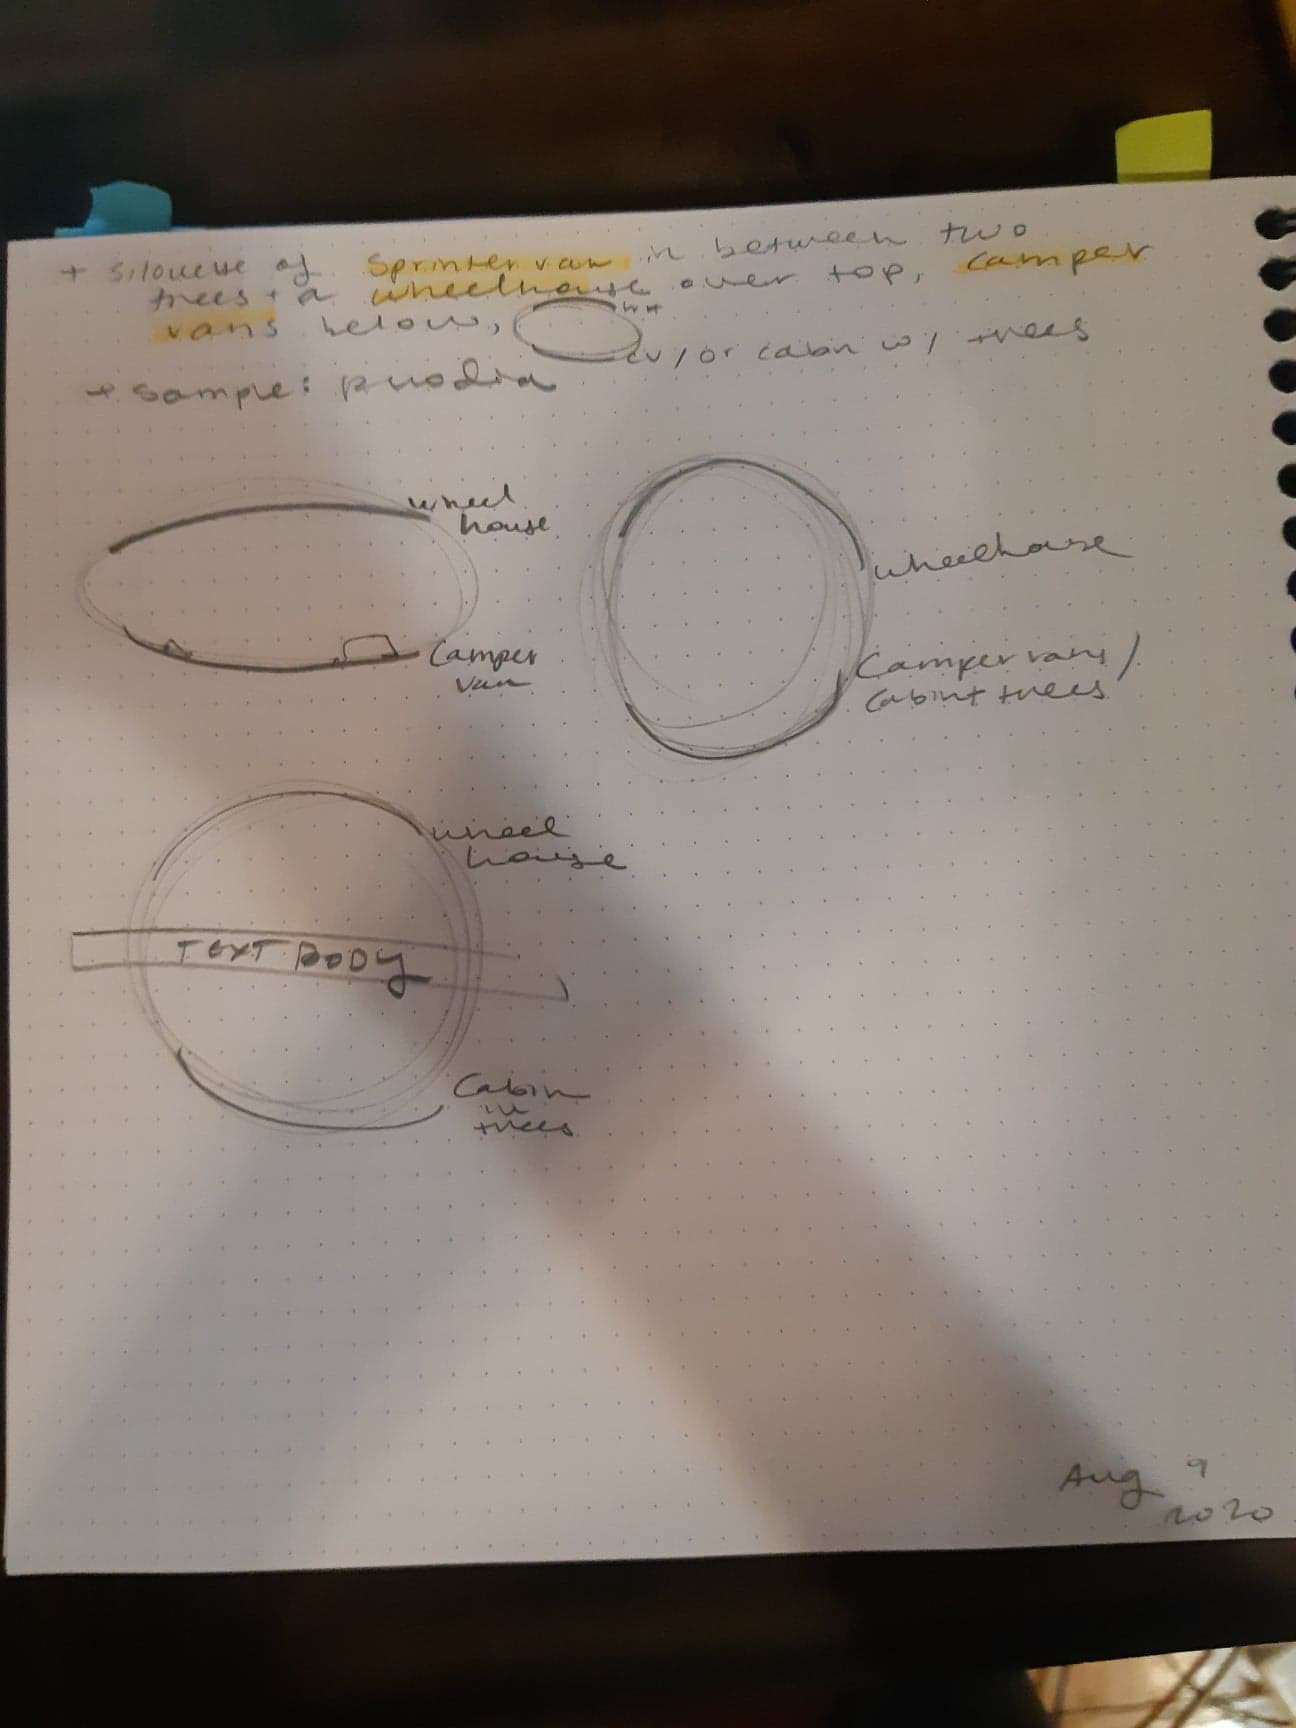 + Silouette of Sprinter van in between two
trees + a wheelhouse over top, camper
vans below, WH
CV / or cabin w/ trees
+ Sample:
wheel
house
Camper
van
wheelhouse
Camper vans /
Cabin + trees
wheel
house
TEXT BODY
Cabin
in
trees
Aug 9
2020